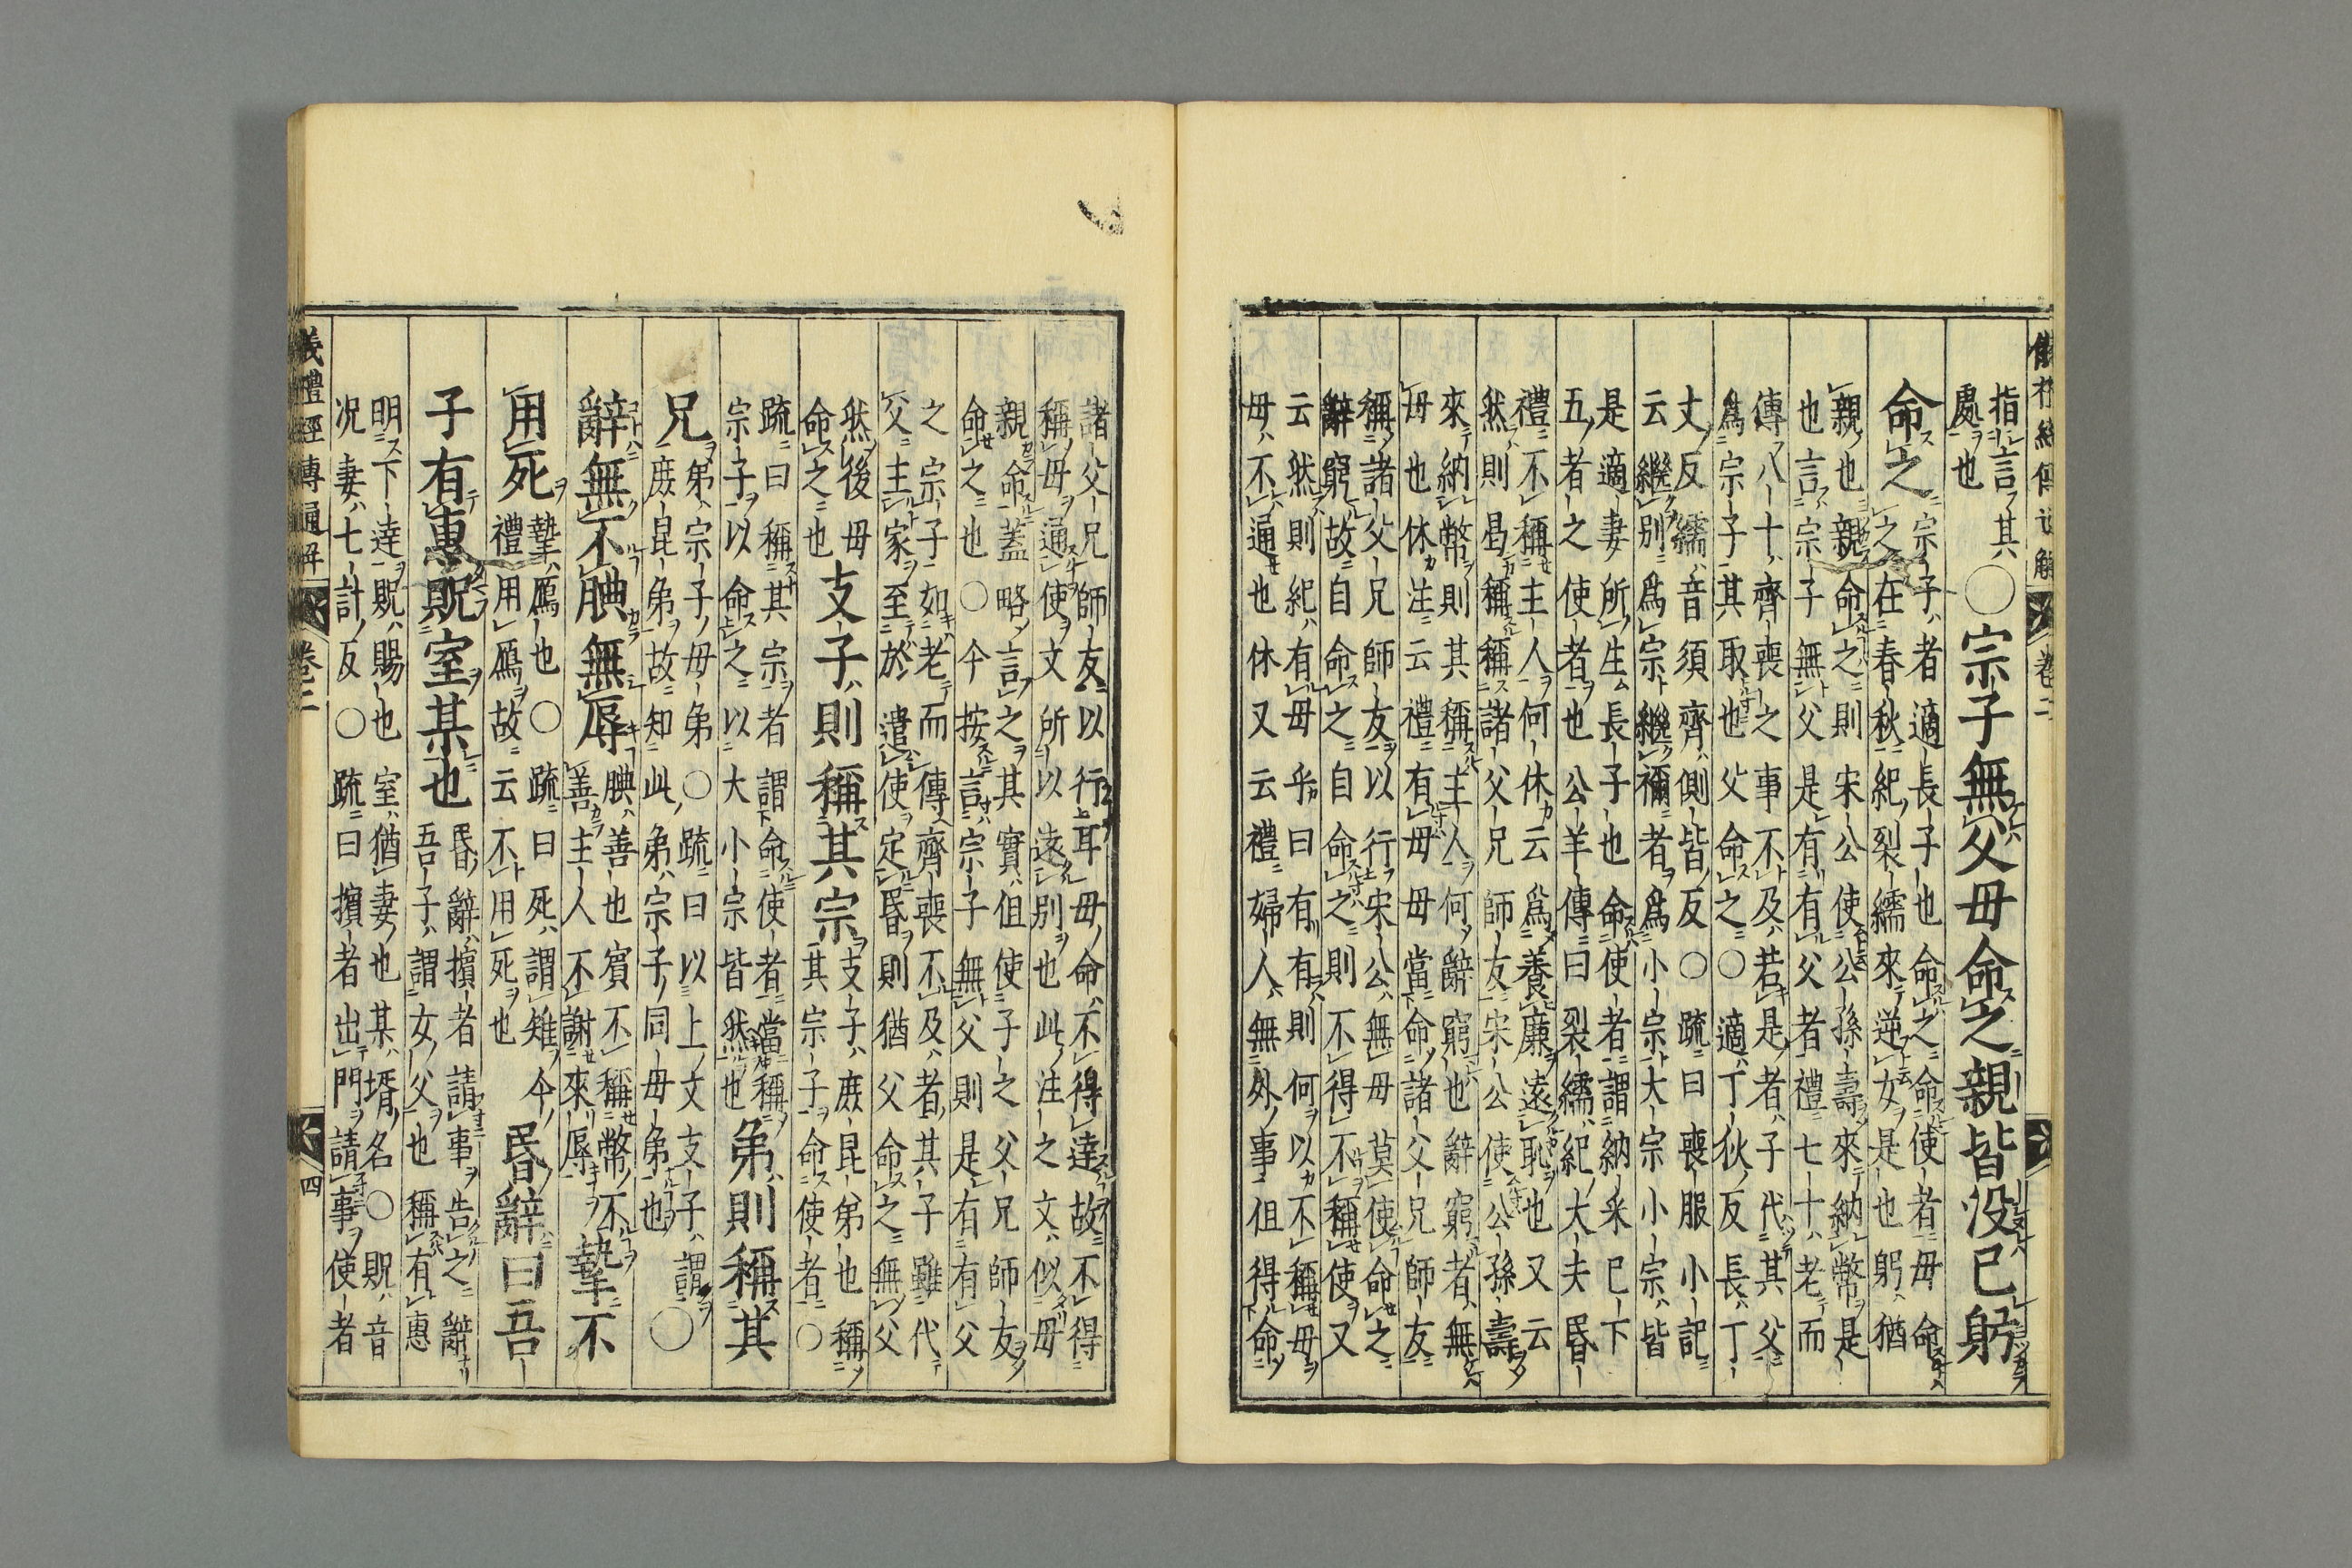 卷二
指言其
處也
○宗子無父母命之親皆没已躬
命之
宗子者適長子也命之命使者母命
之在春秋紀裂繻來逆女是也躬猶
親也親命之則宋公使公孫壽來納幣是
也言宗子無父是有有父者禮七十老而
傳八十齊喪之事不及若是者子代其父
為宗子其取也父命之○適丁狄反長丁
丈反繻音須齊側皆反○疏曰喪服小記
云繼别為宗繼禰者為小宗大宗小宗皆
是適妻所生長子也命使者謂納采已下
五者之使者也公羊傳曰裂繻紀大夫昏
禮不稱主人何休云為養廉遠恥也又云
然則曷稱稱諸父兄師友宋公使公孫壽
來納幣則其稱主人何辭窮也辭窮者無
母也休注云禮有母母當命諸父兄師友
稱諸父兄師友以行宋公無母莫使命之
辭窮故自命之自命之則不得不稱使又
云然則紀有母乎曰有有則何以不稱母
母不通也休又云禮婦人無外事但得命
諸父兄師友以行耳母命不得達故不得
稱母通使文所以遠别也此注之文似母
親命蓋略言之其實但使子之父兄師友
命之也○今按言宗子無父則是有有父
之宗子如老而傳齊喪不及者其子雖代
父主家至於遣使定昏則猶父命之無父
然後母
命之也
支子則稱其宗
支子庶昆弟也稱
其宗子命使者○
疏曰稱其宗者謂命使者當稱
宗子以命之以大小宗皆然也
弟則稱其
兄
弟宗子母弟○疏曰以上文支子謂
庶昆弟故知此弟宗子同母弟也
○
辭無不腆無辱
腆善也賓不稱幣不
善主人不謝來辱
摯不
用死
摯鴈也○疏曰死謂雉今
禮用鴈故云不用死也
昏辭曰吾
子有惠貺室某也
昏辭擯者請事告之辭
吾子謂女父也稱有惠
明下達貺賜也室猶妻也某壻名○貺音
况妻七計反○疏曰擯者出門請事使者
儀禮經傳通解 卷二 四